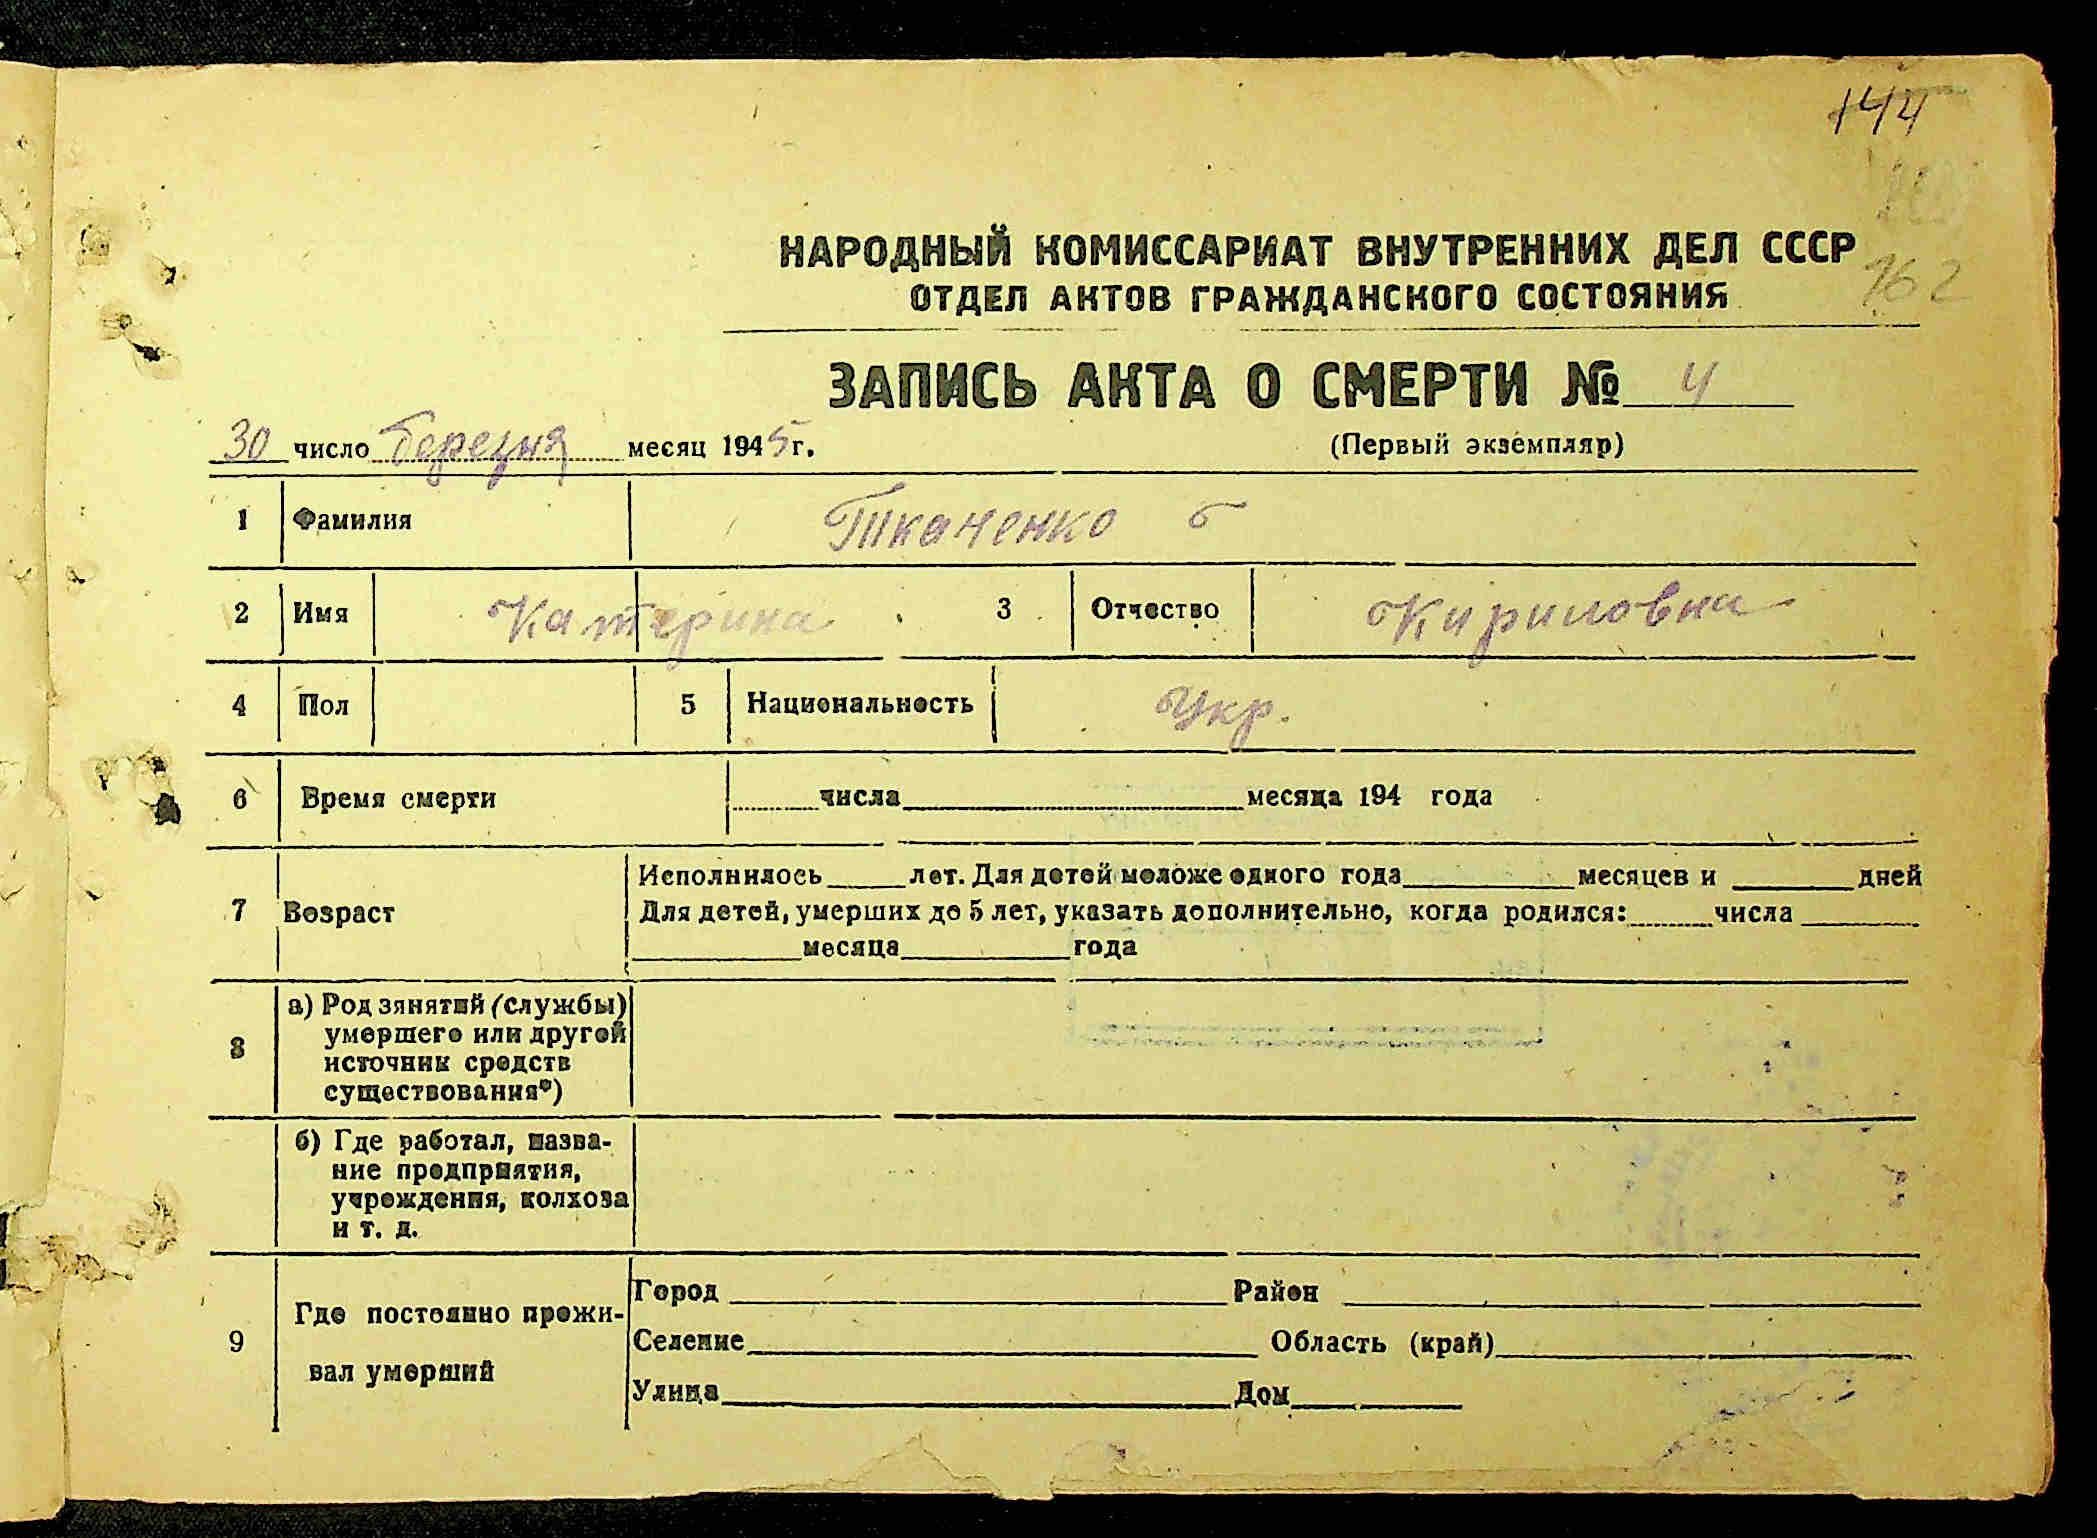 144
162
НАРОДНЫЙ КОМИССАРИАТ ВНУТРЕННИХ ДЕЛ СССР
ОТДЕЛ АКТОВ ГРАЖДАНСКОГО СОСТОЯНИЯ
ЗАПИСЬ АКТА О СМЕРТИ № 4
30 число березня месяц 1945 г.
(Первый экземпляр)
1 Фамилия Ткаченко
2 Имя Катерина 3 Отчество Кириловна
4 Пол 5 Национальность Укр.
6 Время смерти числа месяца 194 года
7 Возраст
Исполнилось лет. Для детей моложе одного года месяцев и дней
Для детей, умерших до 5 лет, указать дополнительно, когда родился: числа
месяца года
8 а) Род зянятий (службы)
умершего или другой
источник средств
существования*)
б) Где работал, назва-
ние предприятия,
учреждения, колхоза
и т. д.
9 Где постоянно прожи-
вал умерший
Город Район
Селение Область (край)
Улица Дом